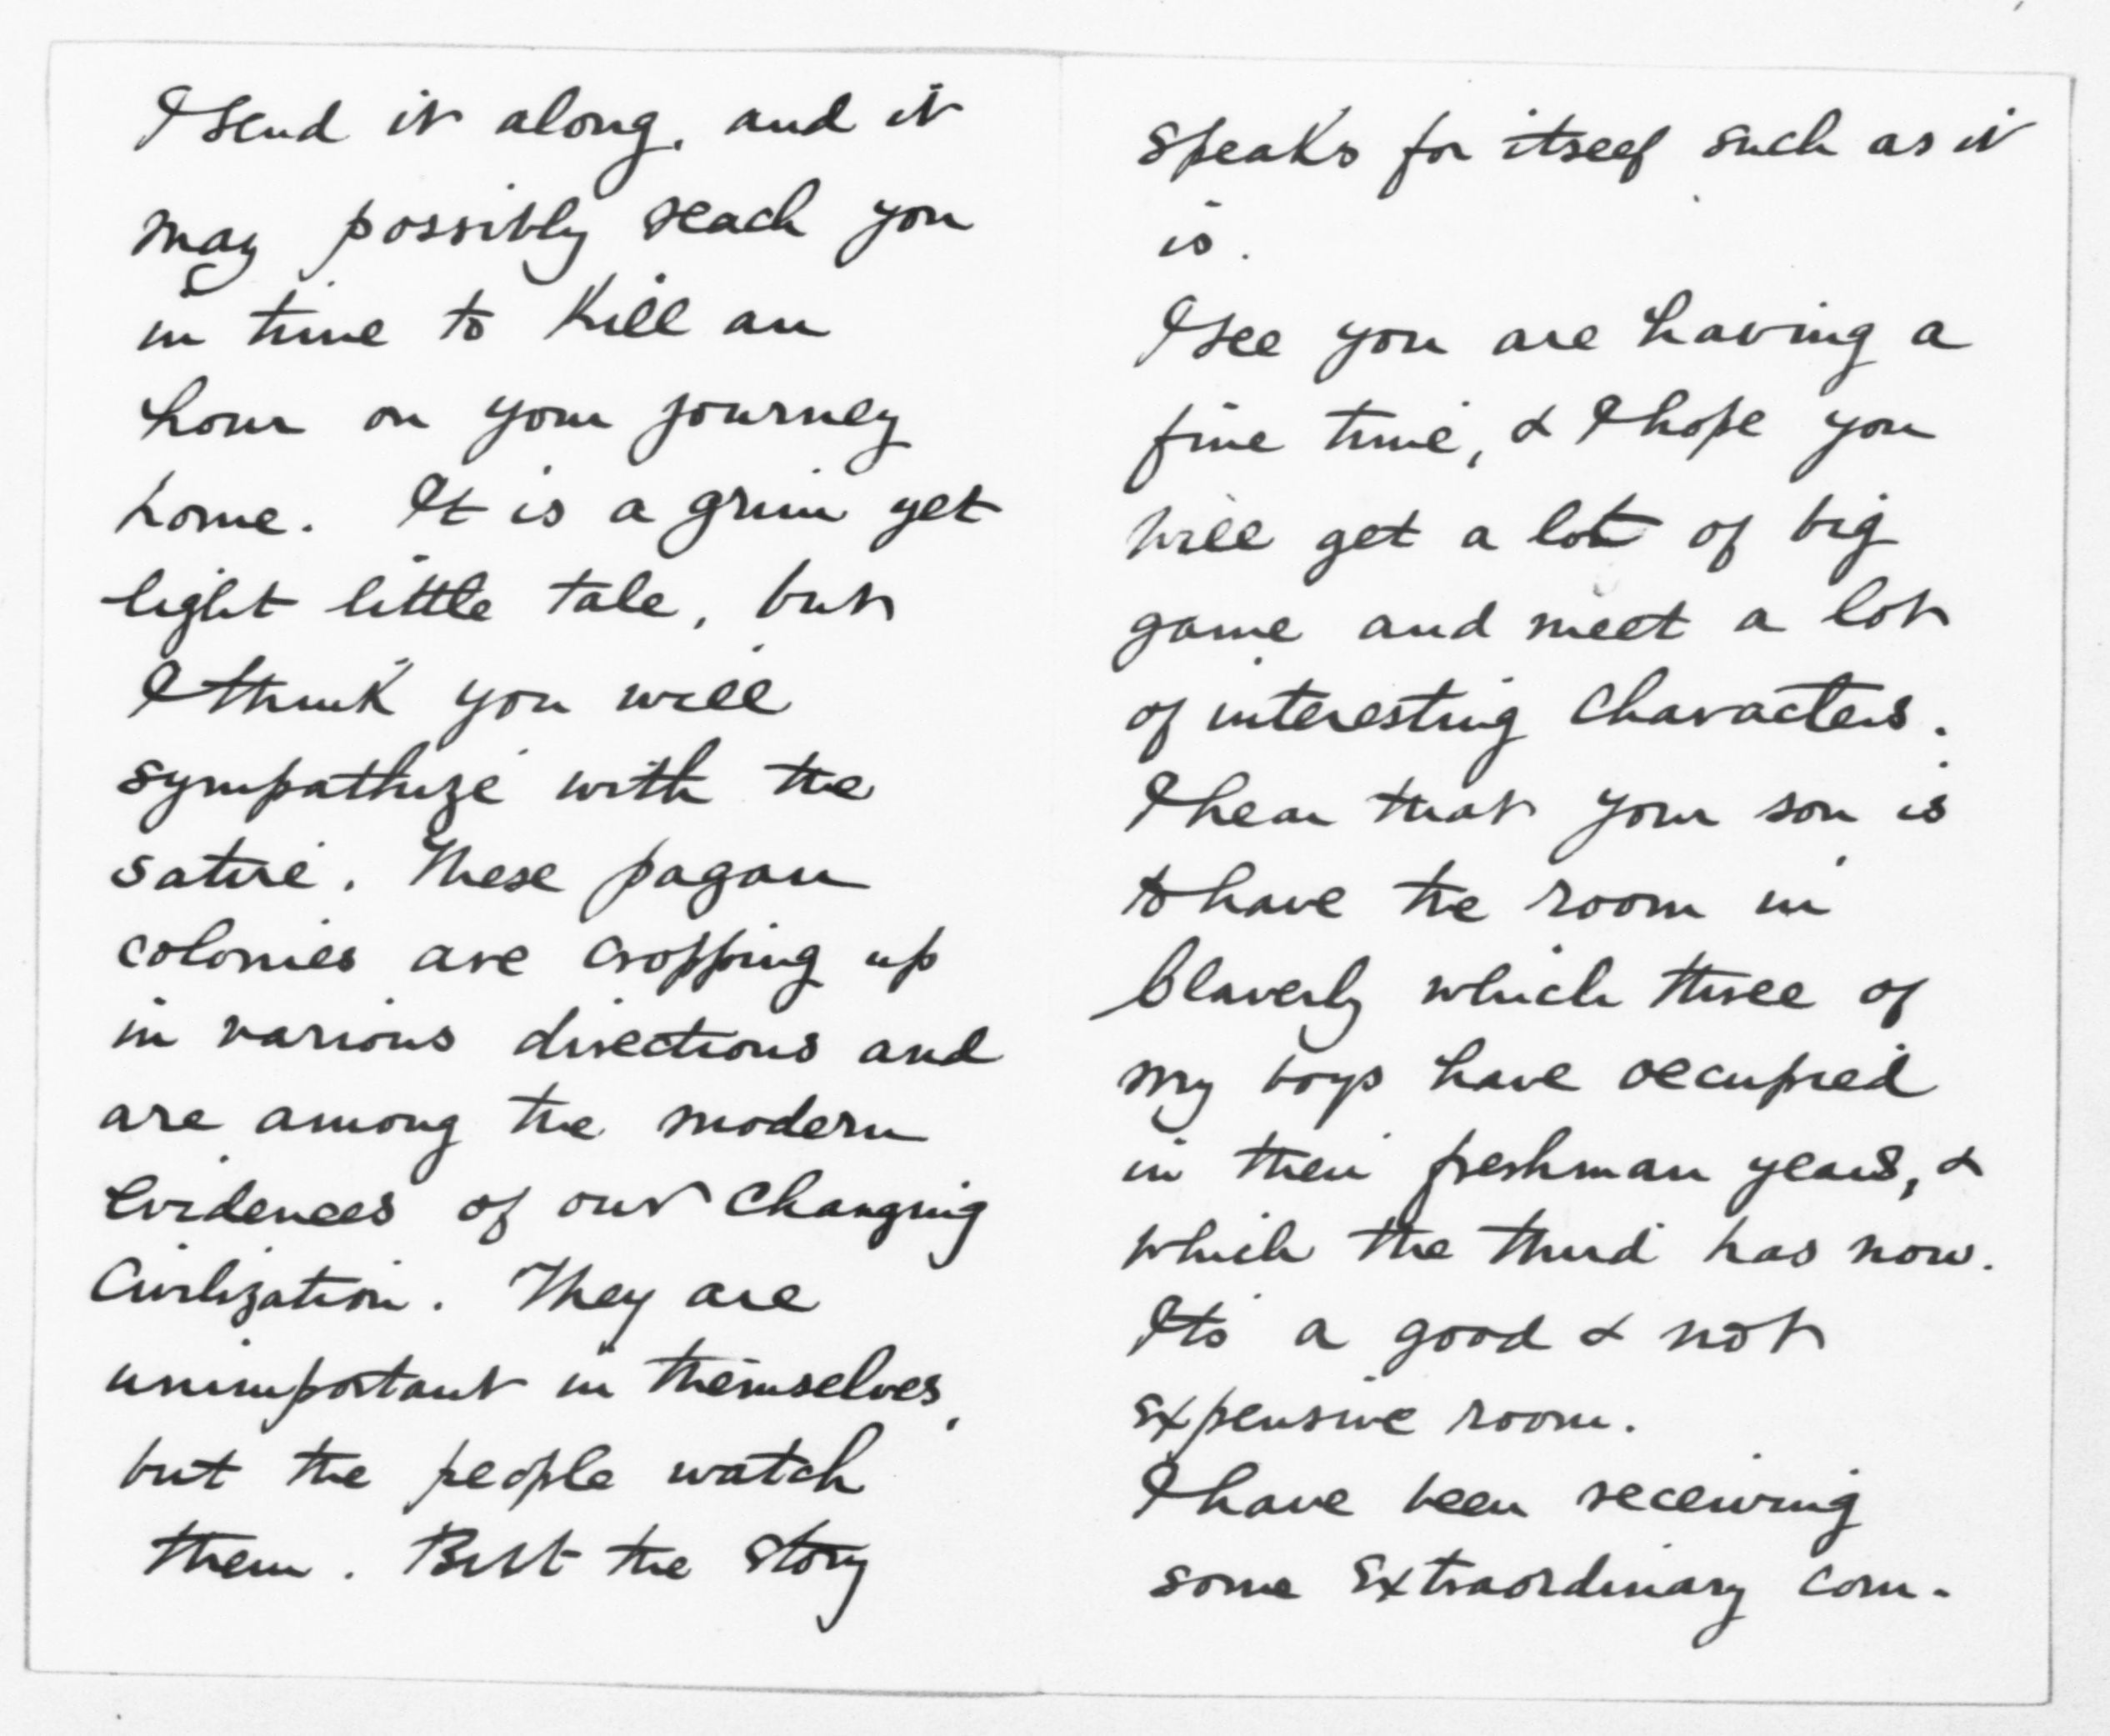 I send it along, and it
may possibly reach you
in time to kill an
hour on your journey
home. It is a grim yet
light little tale, but
I think you will
sympathize with the
satire. These pagan
colonies are cropping up
in various directions and
are among the modern
evidences of our changing
civilization. They are
unimportant in themselves,
but the people watch
them. But the story
speaks for itself such as it
is.
I see you are having a
fine time, & I hope you
will get a lot of big
game and meet a lot
of interesting characters.
I hear that your son is
to have the room in
Claverly which three of
my boys have occupied
in their freshman years, &
which the third has now.
Its a good & not
expensive room.
I have been receiving
some extraordinary com-